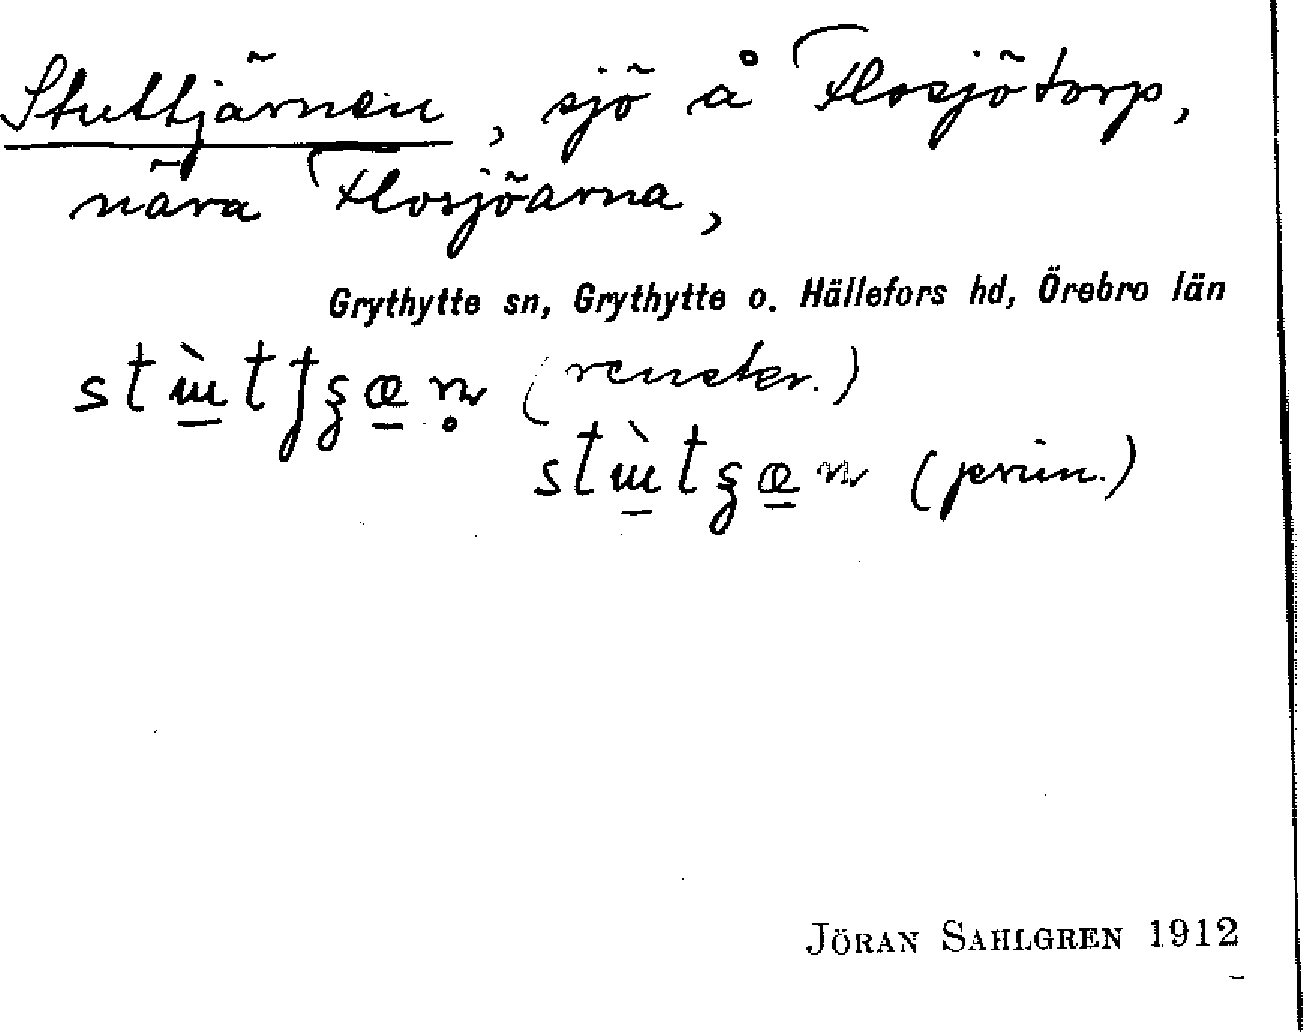 Stuttjärnen, sjö å Flosjötorp,
nära Flosjöarna,
Grythytte sn, Grythytte o. Hällefors hd, Örebro län
(renster.)
(prim.)
JÖRAN SAHLGREN 1912